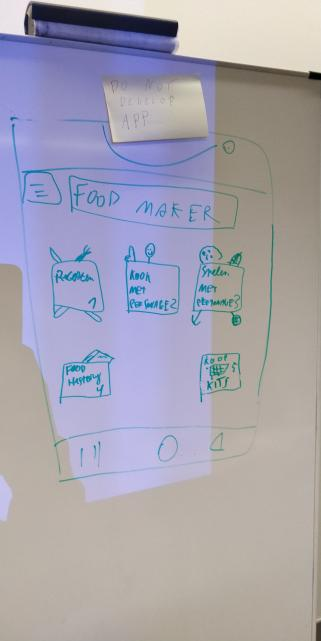 DO NOT
DEVELOP
APP
FOOD MAKER
1
KOOK
MET
PERSONAGE 2
Spelen
MET
PERSONAGE 3
FOOD
HISTORY
4
KOOP
5
KITS